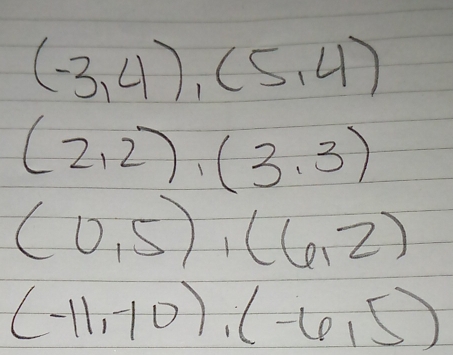 (-3,4),(5,4)
(2,2),(3.3)
(0,5),(6,2)
(-11,-10),(-6,5)